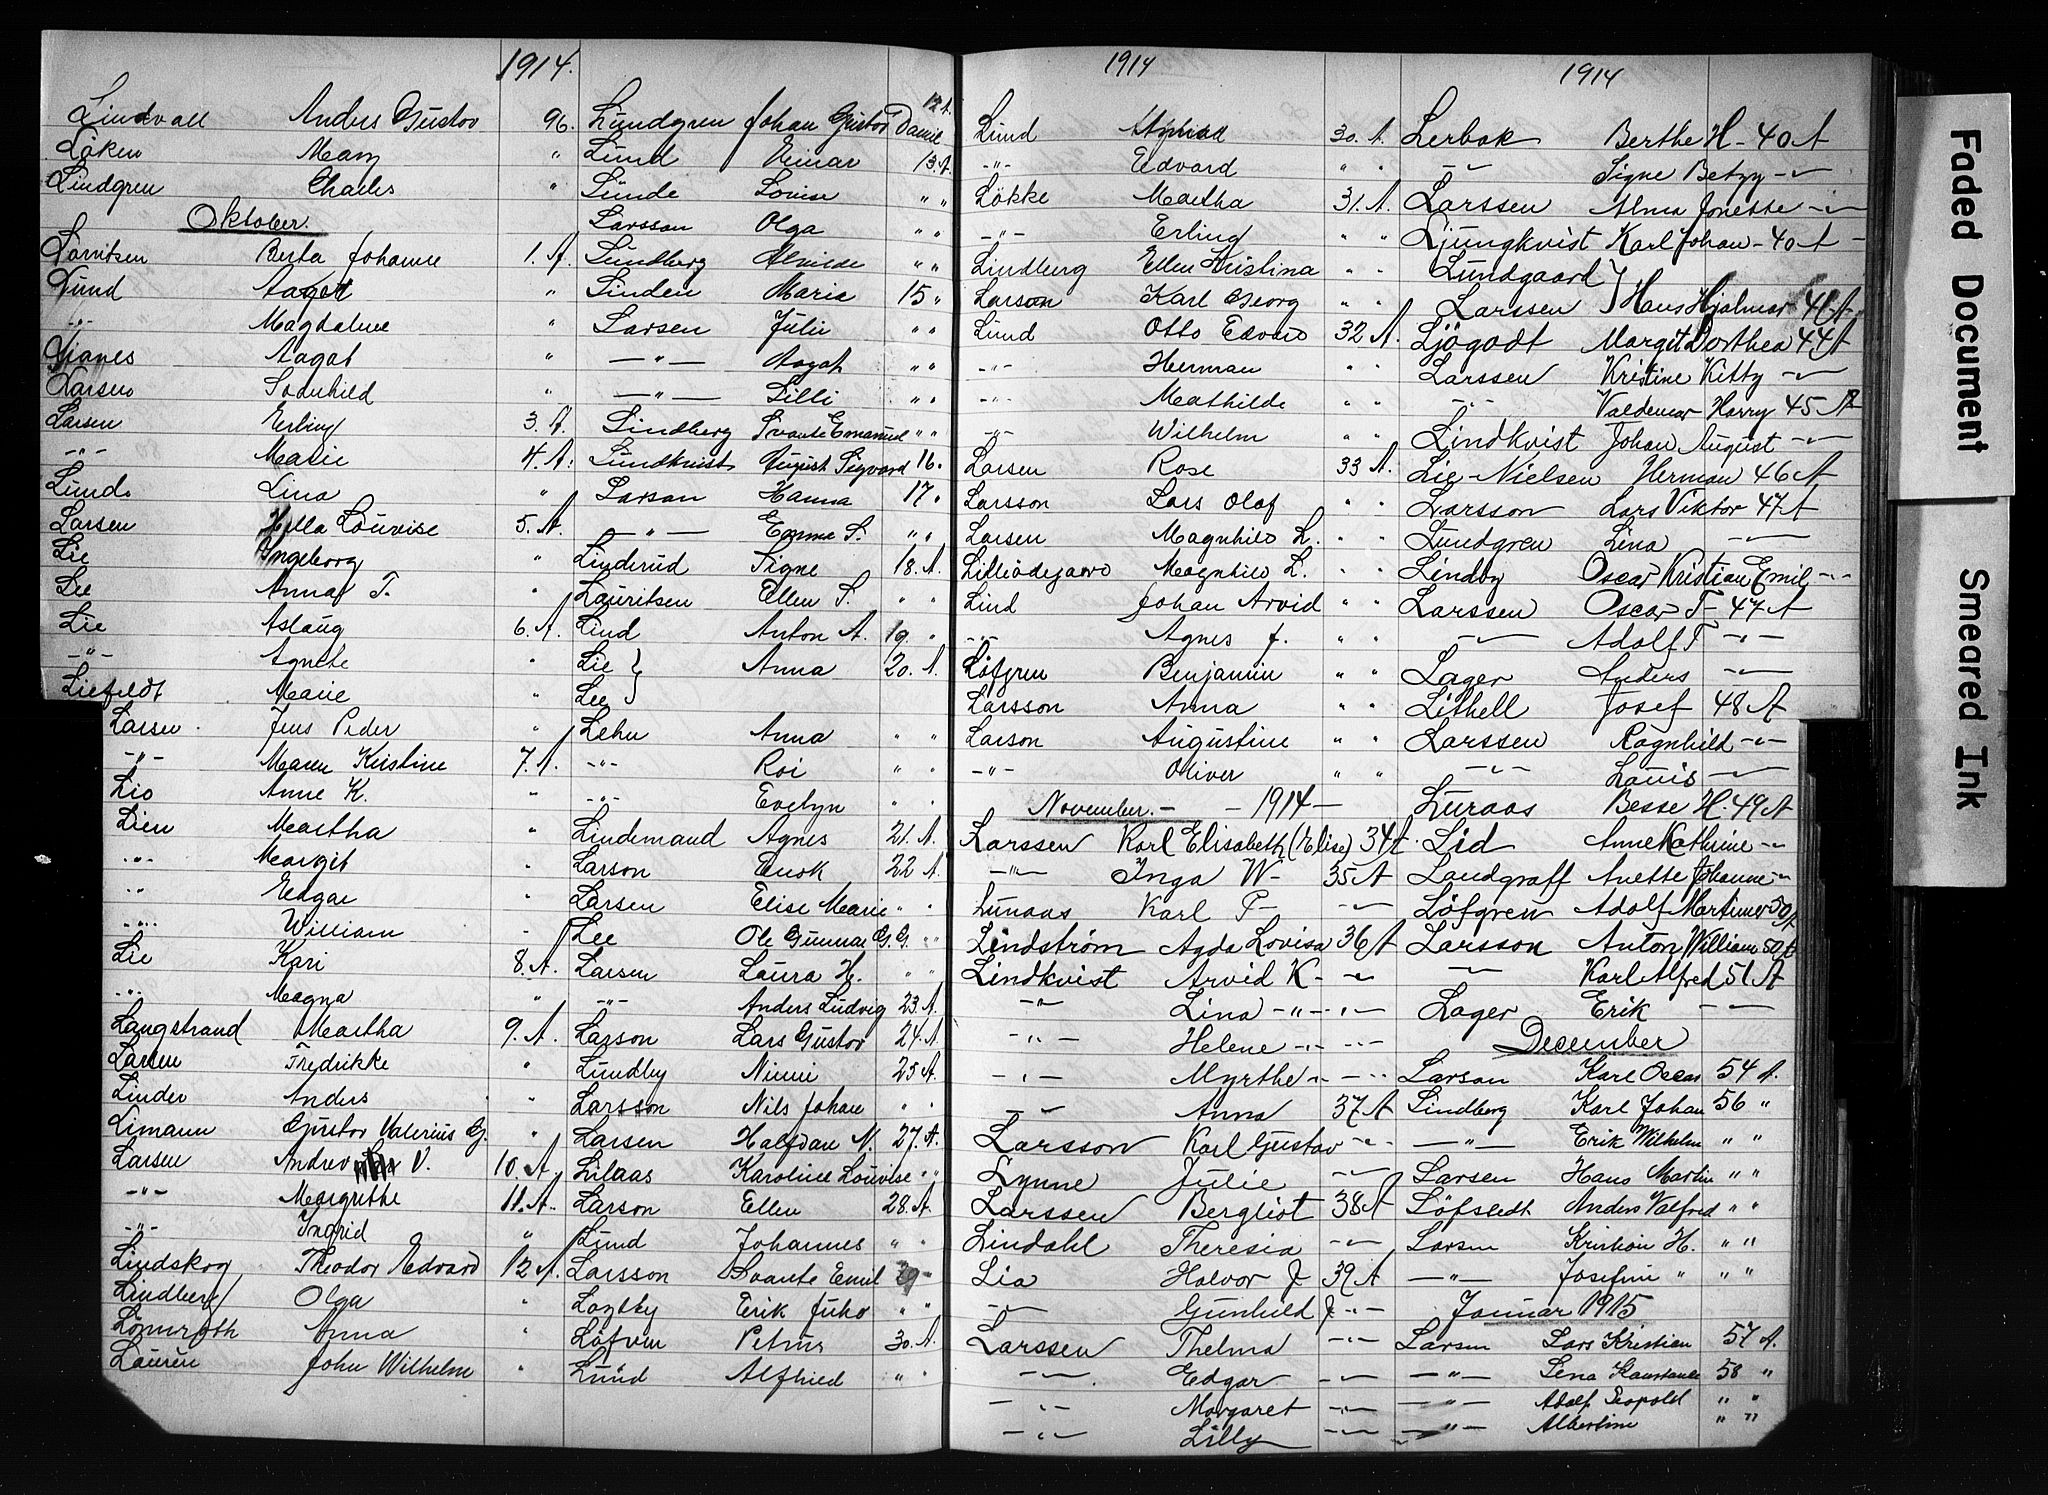 1914.
Lindvall Anders Gustov 96.
Löken Mary "
Lindgren Charles "
Oktober.
Berta Johanne 1. A.
Lund Aagot "
-"- Magdalene "
Aagot "
Larsen Sovnhild "
Larsen Erling 3. A.
-"- Marie 4. A.
Lund Lina "
Larsen Hilla Louvise 5. A.
Lie Ingeborg "
Lee Anna T. "
Lie Aslaug 6. A.
-"- Agnete "
Liefeldt Marie "
Larsen Jens Peder "
-"- Maren Kristine 7. A.
Lio Anne K. "
Lien Martha "
-"- Margit "
-"- Edgar "
-"- William "
Lie Kari 8. A.
-"- Magna "
Langstrand Martha 9. A.
Larsen Fredrikke "
Linder Anders "
Limann Gustov Valerius G. "
Larsen Andrev V. 10. A.
-"- Margrethe 11. A.
-"- Ingrid "
Lindskog Theodor Edvard 12 A.
Lindberg Olga "
Lönnroth Anna "
Lauren John Wilhelm "
Lundgren Johan Gustov Daniel 12 A.
Lund Einar 13. A.
Lunde Lovise " "
Larsson Olga " "
Lundberg Alvilde " "
Linden Maria 15 "
Larsen Julie " "
-"- Aagot " "
-"- Lilli " "
Lindberg Svante Emanuel " "
Lundkvist August Sigvard 16 "
Larsan Hanna 17 "
-"- Emma S. " "
Linderud Signe 18. A.
Lauritsen Ellen S. " "
Lind Anton A. 19. "
Lie } Anna 20. A.
Lee }
Lehn Anna " "
-"- Roi " "
-"- Evelyn " "
Lindemand Agnes 21. A.
Larson Enok 22 A.
Larsen Elise Marie " "
Lee Ole Gunnar G. G. " "
Larsen Laura H. " "
-"- Anders Ludvig 23. A.
Larson Lars Gustov 24. A.
Lundby Ninni 25 A.
Larsson Nils Johan " "
Larsen Halfdan N. 27. A.
Lilaas Karoline Louvise " "
Larson Ellen 28. A.
Lund Johannes " "
Larsson Svante Emil 29 -
Erik Juho " "
Löfven Petrus 30. A.
Lund Alfhild " "
1914
Lund 30. A.
-"- Edvard " "
Lökke Martha 31. A.
-"- Erling " "
Lindberg Ellen Kristina " "
Larson Karl Georg " "
Lund Otto Edvard 32 A.
-"- Herman " "
-"- Mathilde " "
-"- Wilhelm " "
Larsen Rose 33 A.
Larsson Lars Olof " "
Larsen Magnhild L. " "
Lilleödegaard Magnhild L. " "
Lind Johan Arvid " "
-"- Agnes J. " "
Löfgren Benjamin " "
Larsson Anna " "
Larson Augustine " "
-"- Oliver " "
November. - - 1914 -
Larssen Karl Elisabeth (Elise) 34 A.
-"- Inga W - 35 A
Luraas Karl T - -"-
Lindström Agda Lovisa 36 A
Lindkvist Arvid K - -"-
-"- Lina -"- -"-
-"- Helene -"- -"-
-"- Myrthe -"- -"-
-"- Anna 37 A
Larsson Karl Gustav -"-
Lynne Julie -"-
Larssen Bergliot 38 A
Lindahl Theresia -"-
Lia Halvor J 39 A
-"- Gunhild J -"-
Larssen Thelma -"-
-"- Edgar -"-
-"- Margaret -"-
-"- Lilly -"-
1914
Lerbak Berthe H - 40 A
-"- Signe Betzy -"-
Larssen Alma Jonette -"-
Ljungkvist Karl Johan - 40 A -
Lundgaard }
Larssen } Hans Hjalmar 41 A
Ljögodt Margit Dorthea 44 A
Larssen Kristine Kitty -"-
-"- Valdemar Harry 45 A
Lindkvist Johan August -"-
Lie-Nielsen Herman 46 A
Larsson Lars Viktor 47 A
Lundgren Lina -"-
Lindby Oscar Kristian Emil -"-
Larssen Oscar T - 47 A
-"- Adolf T -"-
Lager Anders -"-
Lithell Josef 48 A
Larssen Ragnhild -"-
-"- Louis -"-
Luraas Besse H. 49 A
Lid Anne Kathrine -"-
Landgraff Anette Johanne -"-
Löfgren Adolf Martinus 50 A
Larsson Anton William 50 A
-"- Karl Alfred 51 A
Lager Erik -"-
December
Larson Karl Oscar 54 A.
Lindberg Karl Johan 56 "
-"- Erik Wilhelm " "
Larsen Hans Martin " "
Löfstedt Anders Valfred " "
Larsen Kristian H. " "
-"- Josefine " " "
Januar 1915
Larsen Lars Kristian 57 A.
-"- Lena Konstance 58 "
-"- Adolf Leopold " "
-"- Albertine " "
Faded Document
Smeared Ink